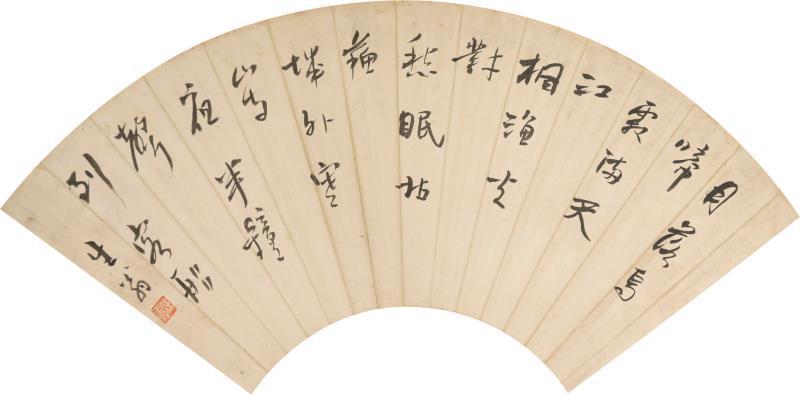 月落烏
啼
霜滿天
江
楓漁火
對
愁眠姑
蘇
城外寒
山寺
夜半鐘
聲
到客船
生翁